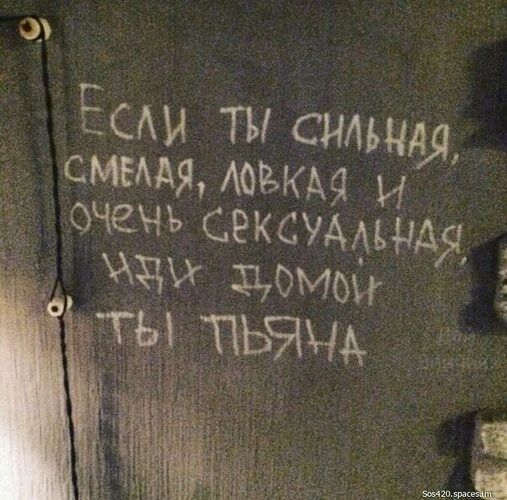 Если ты сильная,
смелая, ловкая и
очень сексуальная,
иди домой
ты пьяна
Sos420.spaces.im